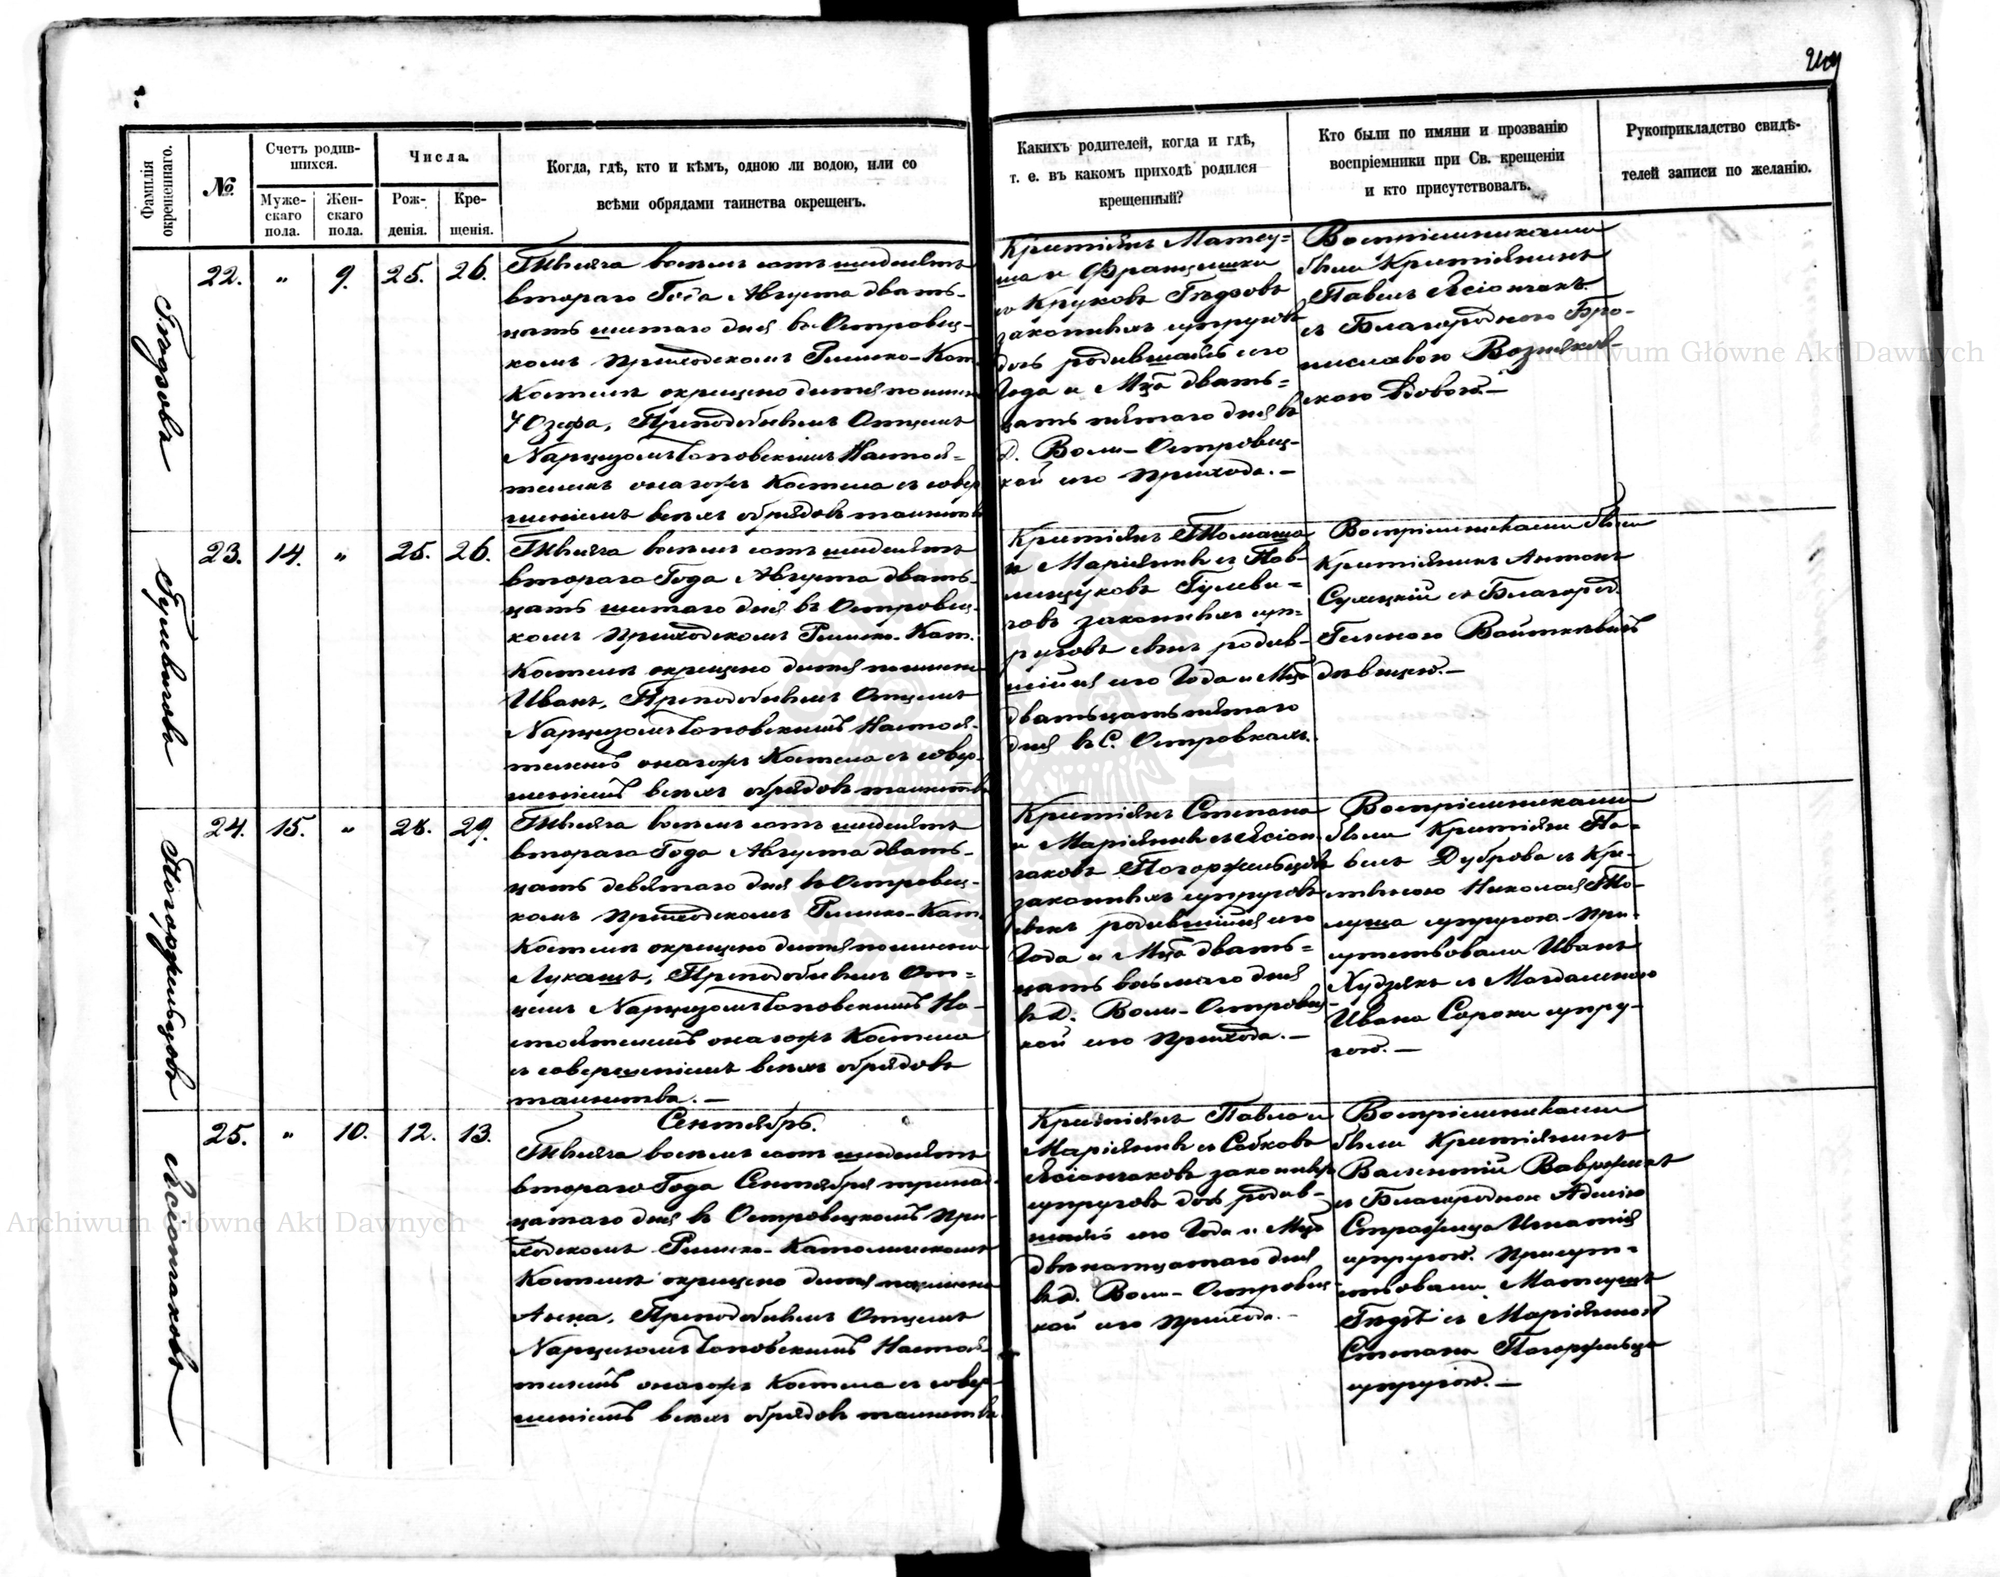 249
Фамилія окрещеннаго.
№.
Счетъ родив-
шихся.
Муже-
скаго
пола.
Жен-
скаго
пола.
Числа.
Рож-
денія.
Кре-
щенія.
Когда, гдѣ, кто и кѣмъ, одною ли водою, или со
всѣми обрядами таинства окрещенъ.
Какихъ родителей, когда и гдѣ,
т. е. въ какомъ приходѣ родился
крещенный?
Кто были по имяни и прозванію
воспріемники при Св. крещеніи
и кто присутствовалъ.
Рукоприкладство свидѣ-
телей записи по желанію.
22. " 9. 25. 26.
Тысяча восемь сотъ семдесятъ
втораго Года Августа двать-
цать шестаго дня въ Островец-
комъ приходскомъ Римско-Кат.
Костелѣ окрещено дитя по имени
Юзефа, Преподобнымъ Отцемъ
Нарцизомъ Настоя-
телемъ онагожъ Костела съ совер
шеніемъ всѣхъ обрядовъ таинства
Крестіянъ Матеу-
ша и Францишки
съ Круковъ
законныхъ супруговъ
дочь родившаяся сего
Года и Мца двать-
цать пятаго дня въ
д. Воли-Островец-
кой сего прихода.-
Воспріемниками
были Крестіянинъ
Павелъ Ясіончакъ
съ Благородною Бро-
ниславою Возняков-
скою Вдовою.-
23. 14. " 25. 26.
Тысяча восемь сотъ семдесятъ
втораго Года Августа двать-
цать шестаго дня въ Островец-
комъ приходскомъ Римско-Кат.
Костелѣ окрещено дитя по имени
Иванъ, Преподобнымъ Отцемъ
Нарцизомъ Настоя-
телемъ онагожъ Костела съ совер-
шеніемъ всѣхъ обрядовъ таинства
Крестіянъ Томаша
и Маріянны съ Пав-
лищуковъ Гулеви-
човъ законныхъ суп-
руговъ сынъ родив-
шійся сего Года и Мца
двадцать пятаго
дня въ С. Островкахъ.
Воспріемниками были
Крестіянинъ Антонъ
Сулецкій съ Благород.
Геленою Войткевичъ
дѣвицею.-
24. 15. " 28. 29.
Тысяча восемь сотъ семдесятъ
втораго Года Августа двать-
цать девятаго дня въ Островец-
комъ приходскомъ Римско-Кат.
Костелѣ окрещено дитя по имени
Лукашъ, Преподобнымъ От-
цемъ Нарцизомъ На-
стоятелемъ онагожъ Костела
съ совершеніемъ всѣхъ обрядовъ
таинства.-
Крестіянъ Степана
и Маріянны съ Ясіон-
чаковъ Погоржельцовъ
законныхъ супруговъ
сынъ родившійся сего
Года и Мца двать-
цать восьмаго дня
въ д. Воли-Островец-
кой сего прихода.-
Воспріемниками
были Крестіяне Па-
велъ Дуброва съ Кре-
стьною Николая
супругою. При-
сутствовали Иванъ
Худзякъ съ Магдаленою
Ивана Сороки супру-
гою.-
25. " 10. 12. 13.
Сентябрь.
Тысяча восемь сотъ семдесятъ
втораго Года Сентября тринад-
цатаго дня въ Островецкомъ при-
ходскомъ Римско-Католическомъ
Костелѣ окрещено дитя по имени
Анна, Преподобнымъ Отцемъ
Нарцизомъ Настоя-
телемъ онагожъ Костела съ совер-
шеніемъ всѣхъ обрядовъ таинства
Крестіянъ Павла и
Маріянны съ Собковъ
Ясіончаковъ законныхъ
супруговъ дочь родив-
шаяся сего Года и Мца
двѣнатцатаго дня
въ д. Воли-Островец-
кой сего прихода.-
Воспріемниками
были Крестіянинъ
Валентій Вавржинъ
съ Благородною Аделею
Игнатія
супругою. Присут-
ствовали Матеушъ
съ Маріянною
Степана Погоржельца
супругою.-
Гулевичова
Погоржельцовъ
Ясіончаковъ
Archiwum Główne Akt Dawnych
Archiwum Główne Akt Dawnych